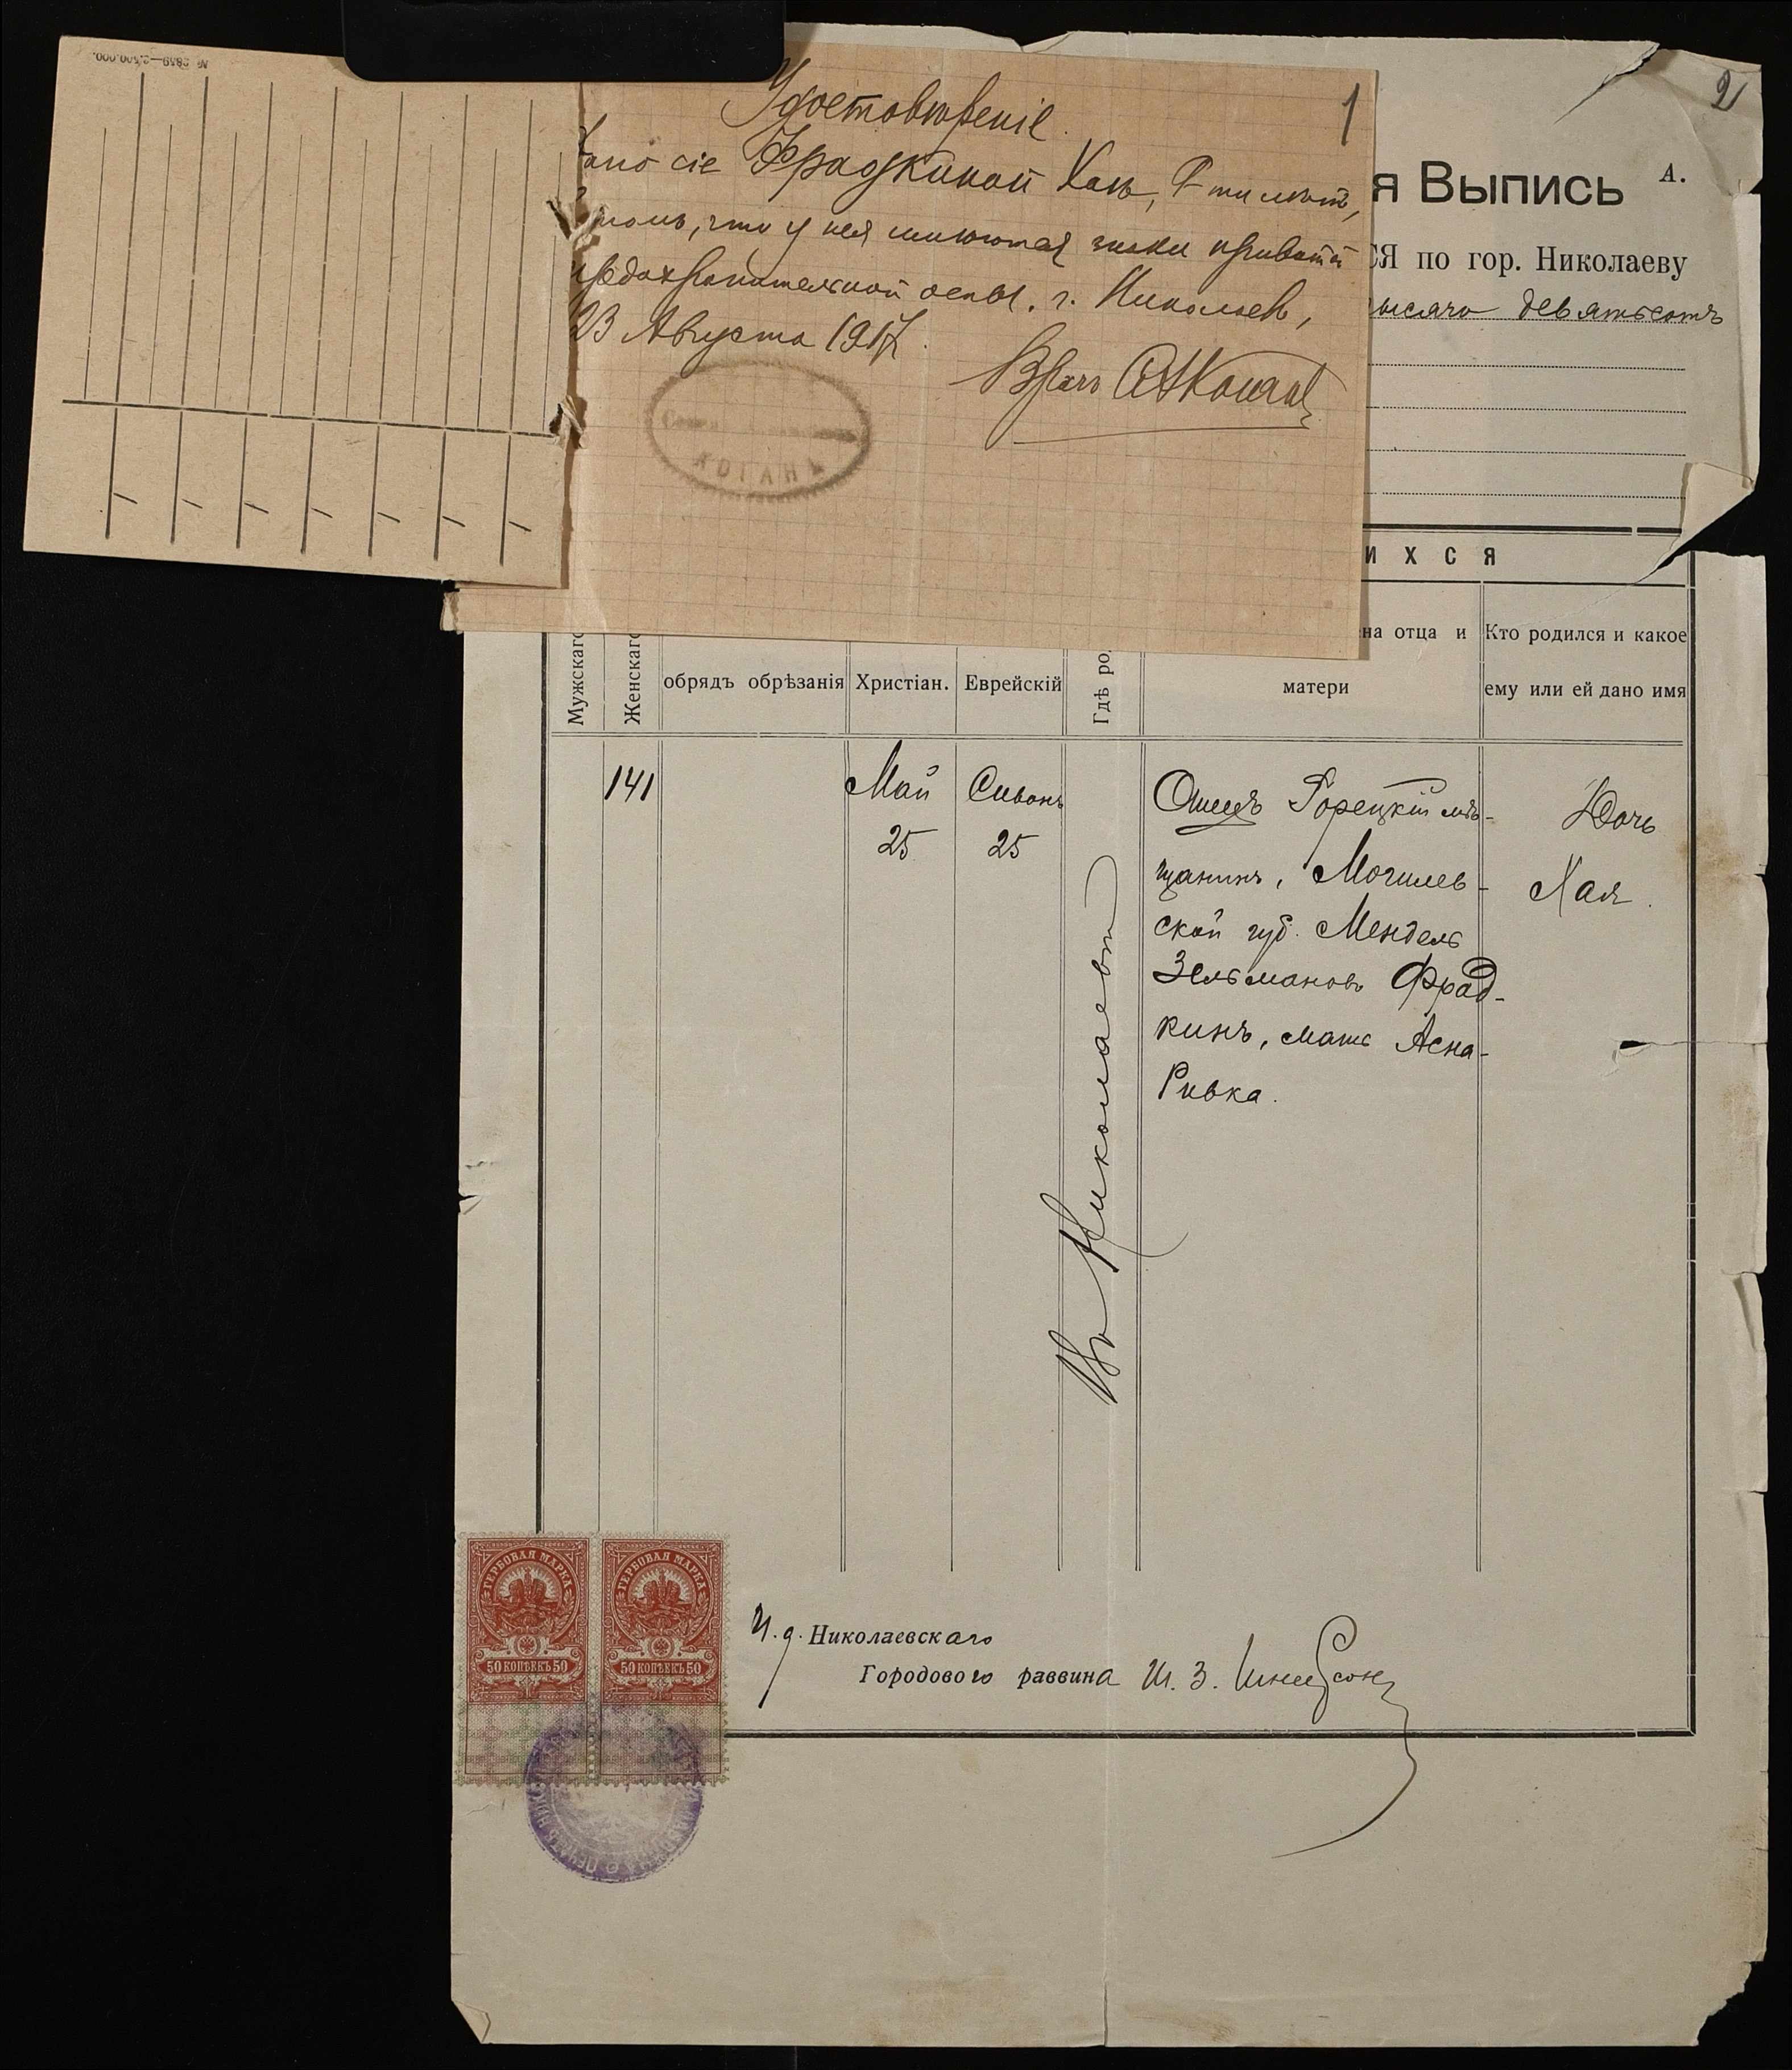 № 2859—2.500.000.
1
2
Удостовѣреніе.
Дано сіе Фрадкиной Хаѣ, 9-ти лѣтъ,
въ томъ, что у нея имѣются знаки привитой
предохранительной оспы. г. Николаевъ,
23 Августа 1917.
Врачъ
КОГАНЪ
я Выпись А.
СЯ по гор. Николаеву
тысяча девятьсотъ
ИХСЯ
Мужскаго
Женскаго
обрядъ обрѣзанія
Христіан.
Еврейскій
Гдѣ ро
на отца и
матери
Кто родился и какое
ему или ей дано имя
141
Май
25
Сивонъ
25
Въ Николаевѣ
Отецъ Горецкій мѣ-
щанинъ, Могилев-
ской губ. Мендель
Зельмановъ Фрад-
кинъ, мать Асна-
Ривка.
Дочь
Хая.
ГЕРБОВАЯ МАРКА
50 КОПѢЕКЪ 50
ГЕРБОВАЯ МАРКА
50 КОПѢЕКЪ 50
И. д. Николаевскаго
Городового раввина Ш. З. Шнеерсон